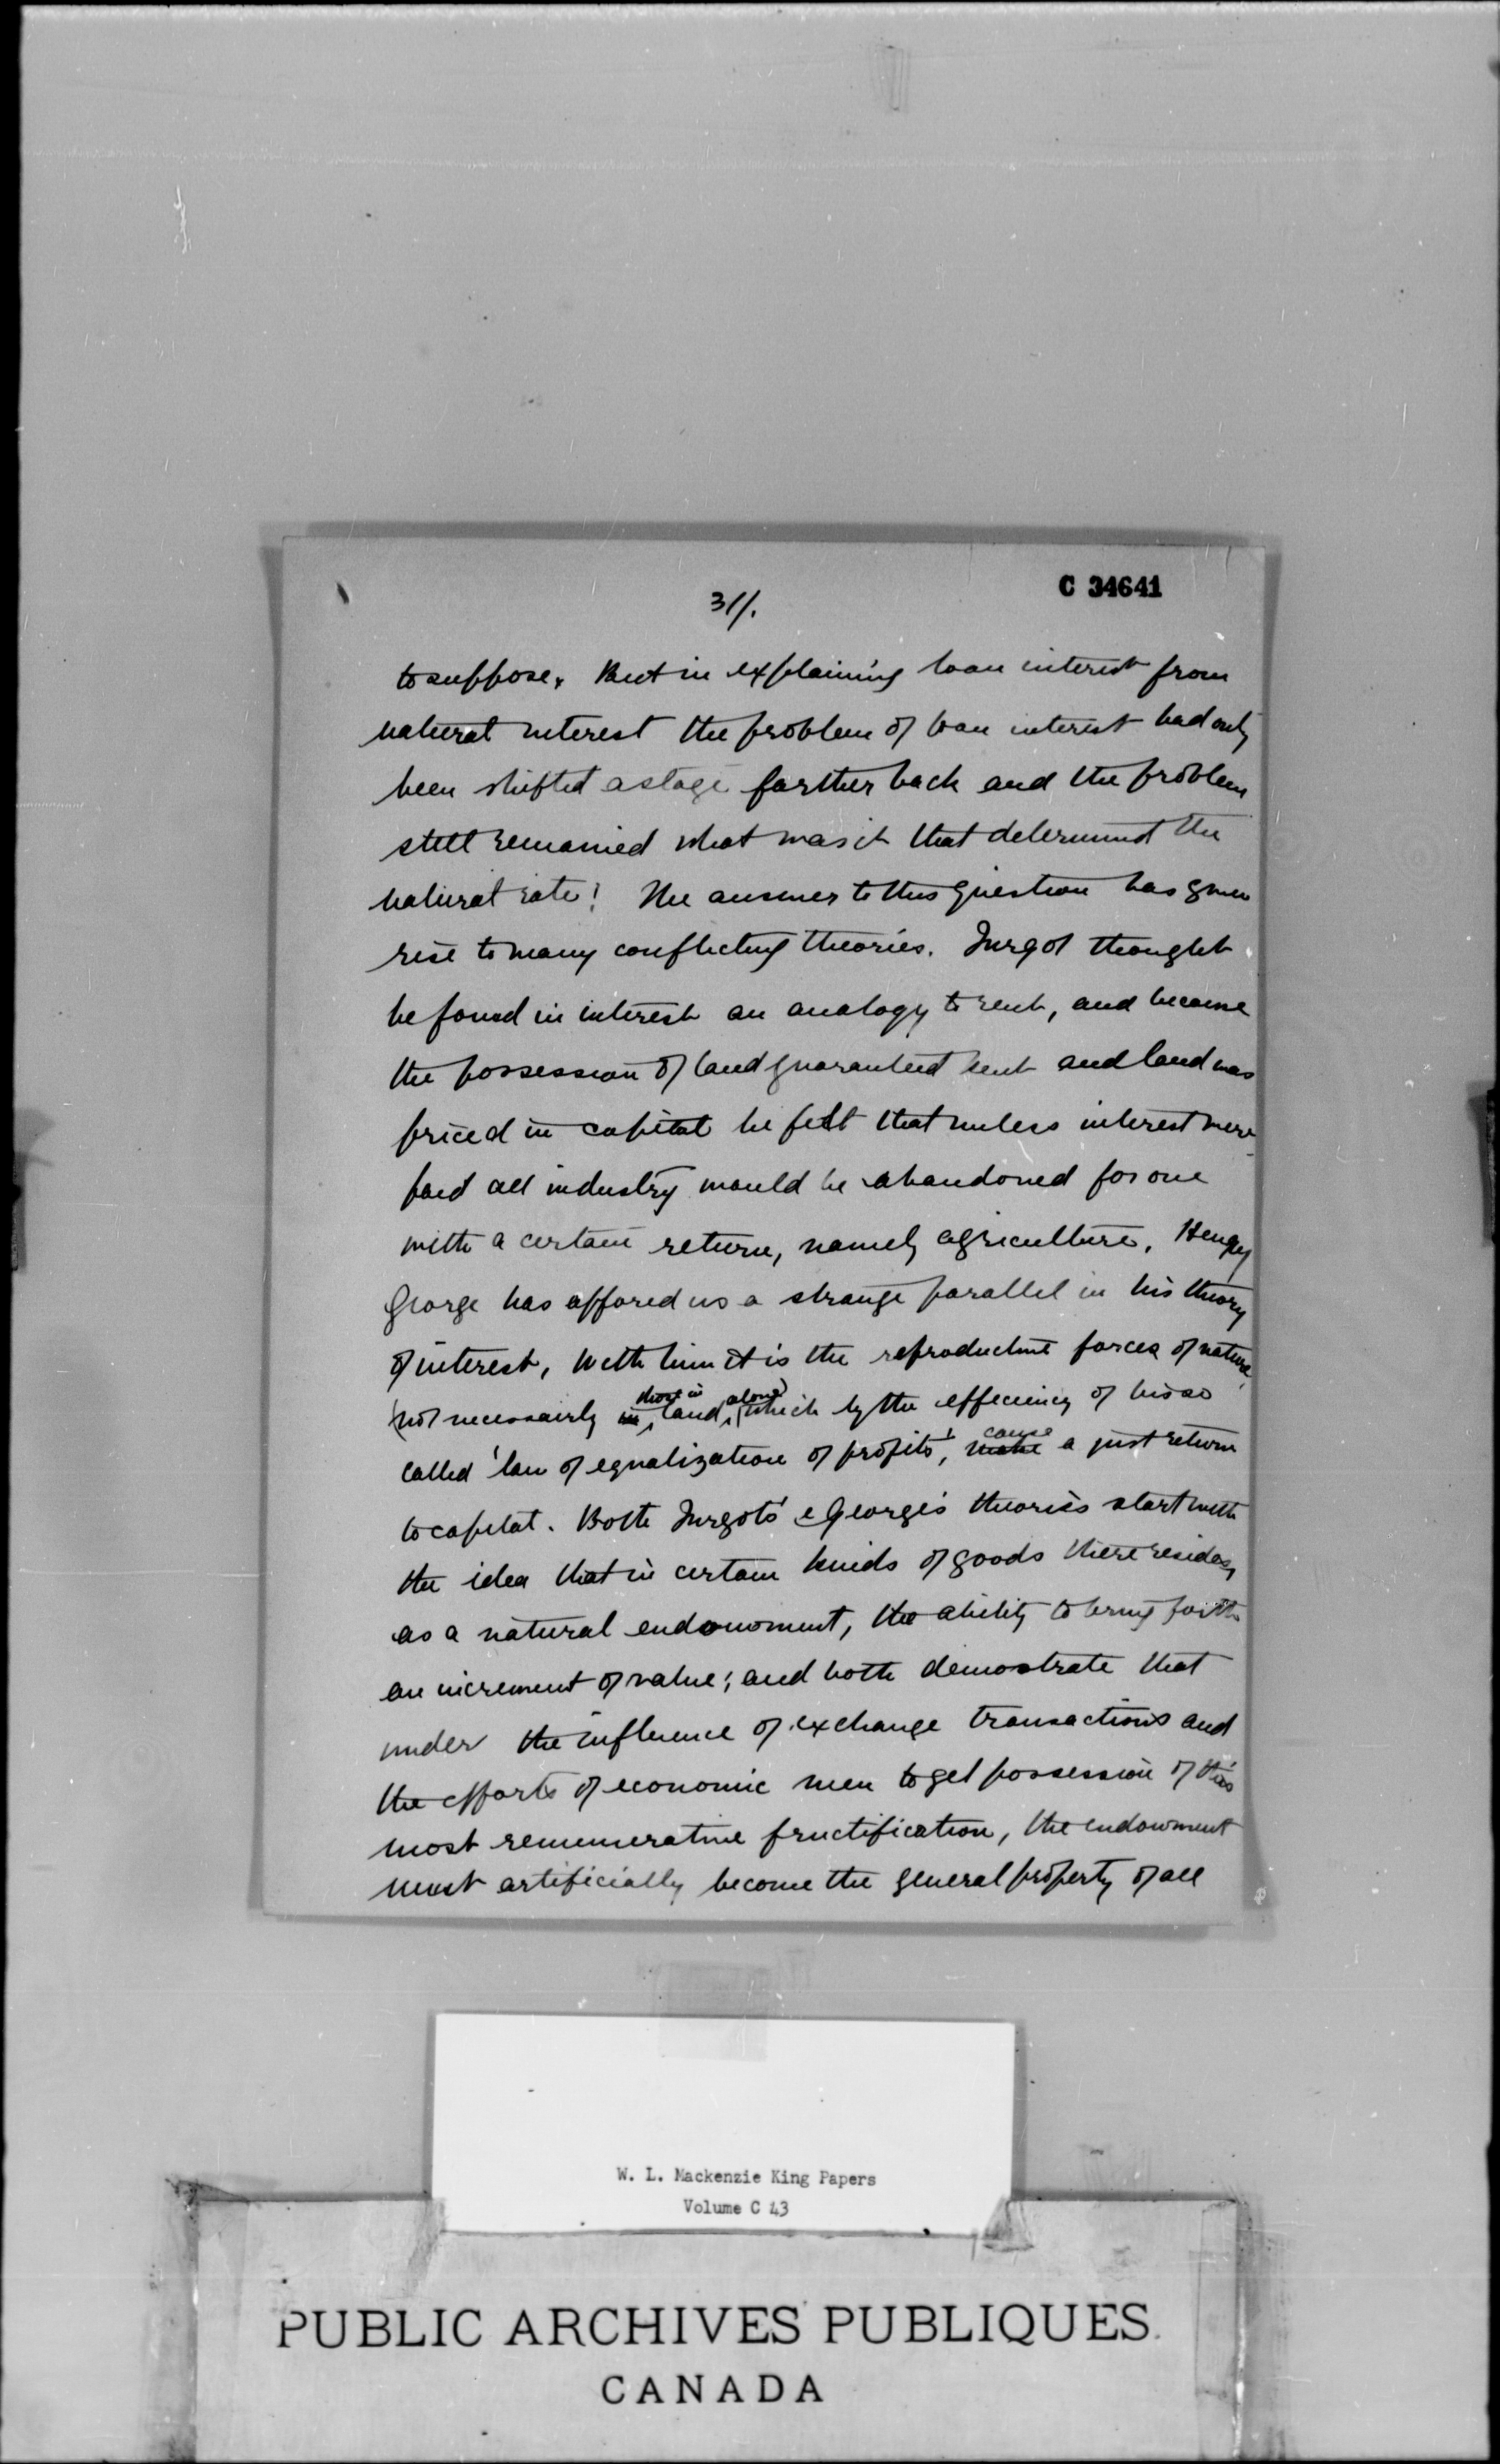 31/.
C 34641
to suppose. But in explaining loan interest from
natural interest the problem of loan interest had only
been shifted a stage farther back and the problem
still remained what was it that determined the
natural rate! The answer to this question has given
rise to many conflicting theories. Turgot thought
he found in interest an analogy to rent, and because
the possession of land guaranteed rent and land was
priced in capital he felt that unless interest were
paid all industry would be abandoned for one
with a certain return, namely agriculture. Henry
George has affored us a strange parallel in his theory
of interest, with him it is the reproductive forces of nature
those in alone)
(not necessarily in land, which by the efficiency of his so
cause
called 'law of equalization of profits', make a just return
to capital. Both Turgots' & George's theories start with
the idea that in certain kinds of goods there resides,
as a natural endowment, the ability to bring forth
an increment of value; and both demostrate that
under the influence of exchange transactions and
the efforts of economic men to get possession of this
most remunerative fructification, the endowment
must artificially become the general property of all
W. L. Mackenzie King Papers
Volume C 43
PUBLIC ARCHIVES PUBLIQUES
CANADA